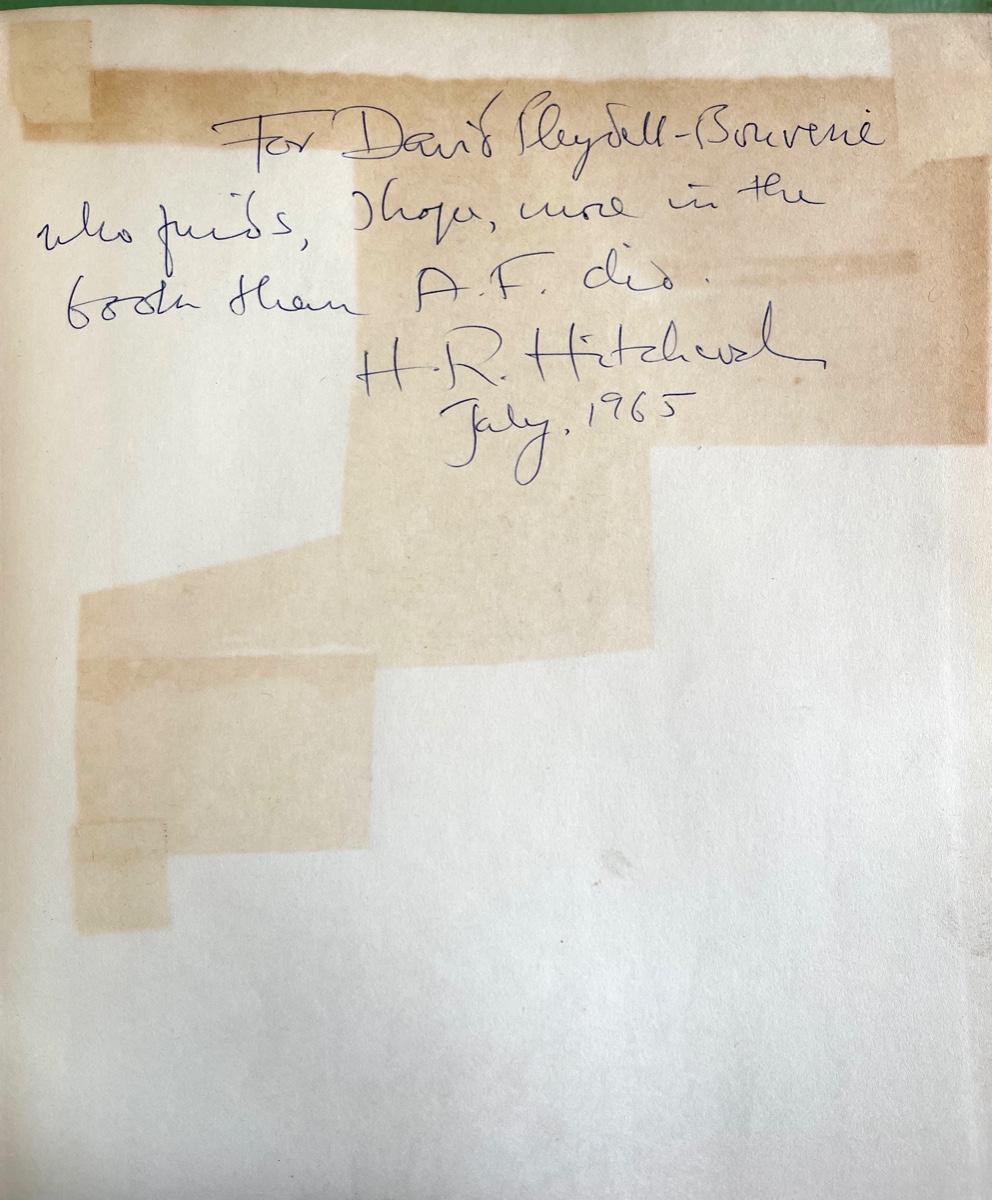 For David Pleydell-Bouverie
who finds, I hope, more in the
book than A.F. did.
H.R. Hitchcock
July, 1965